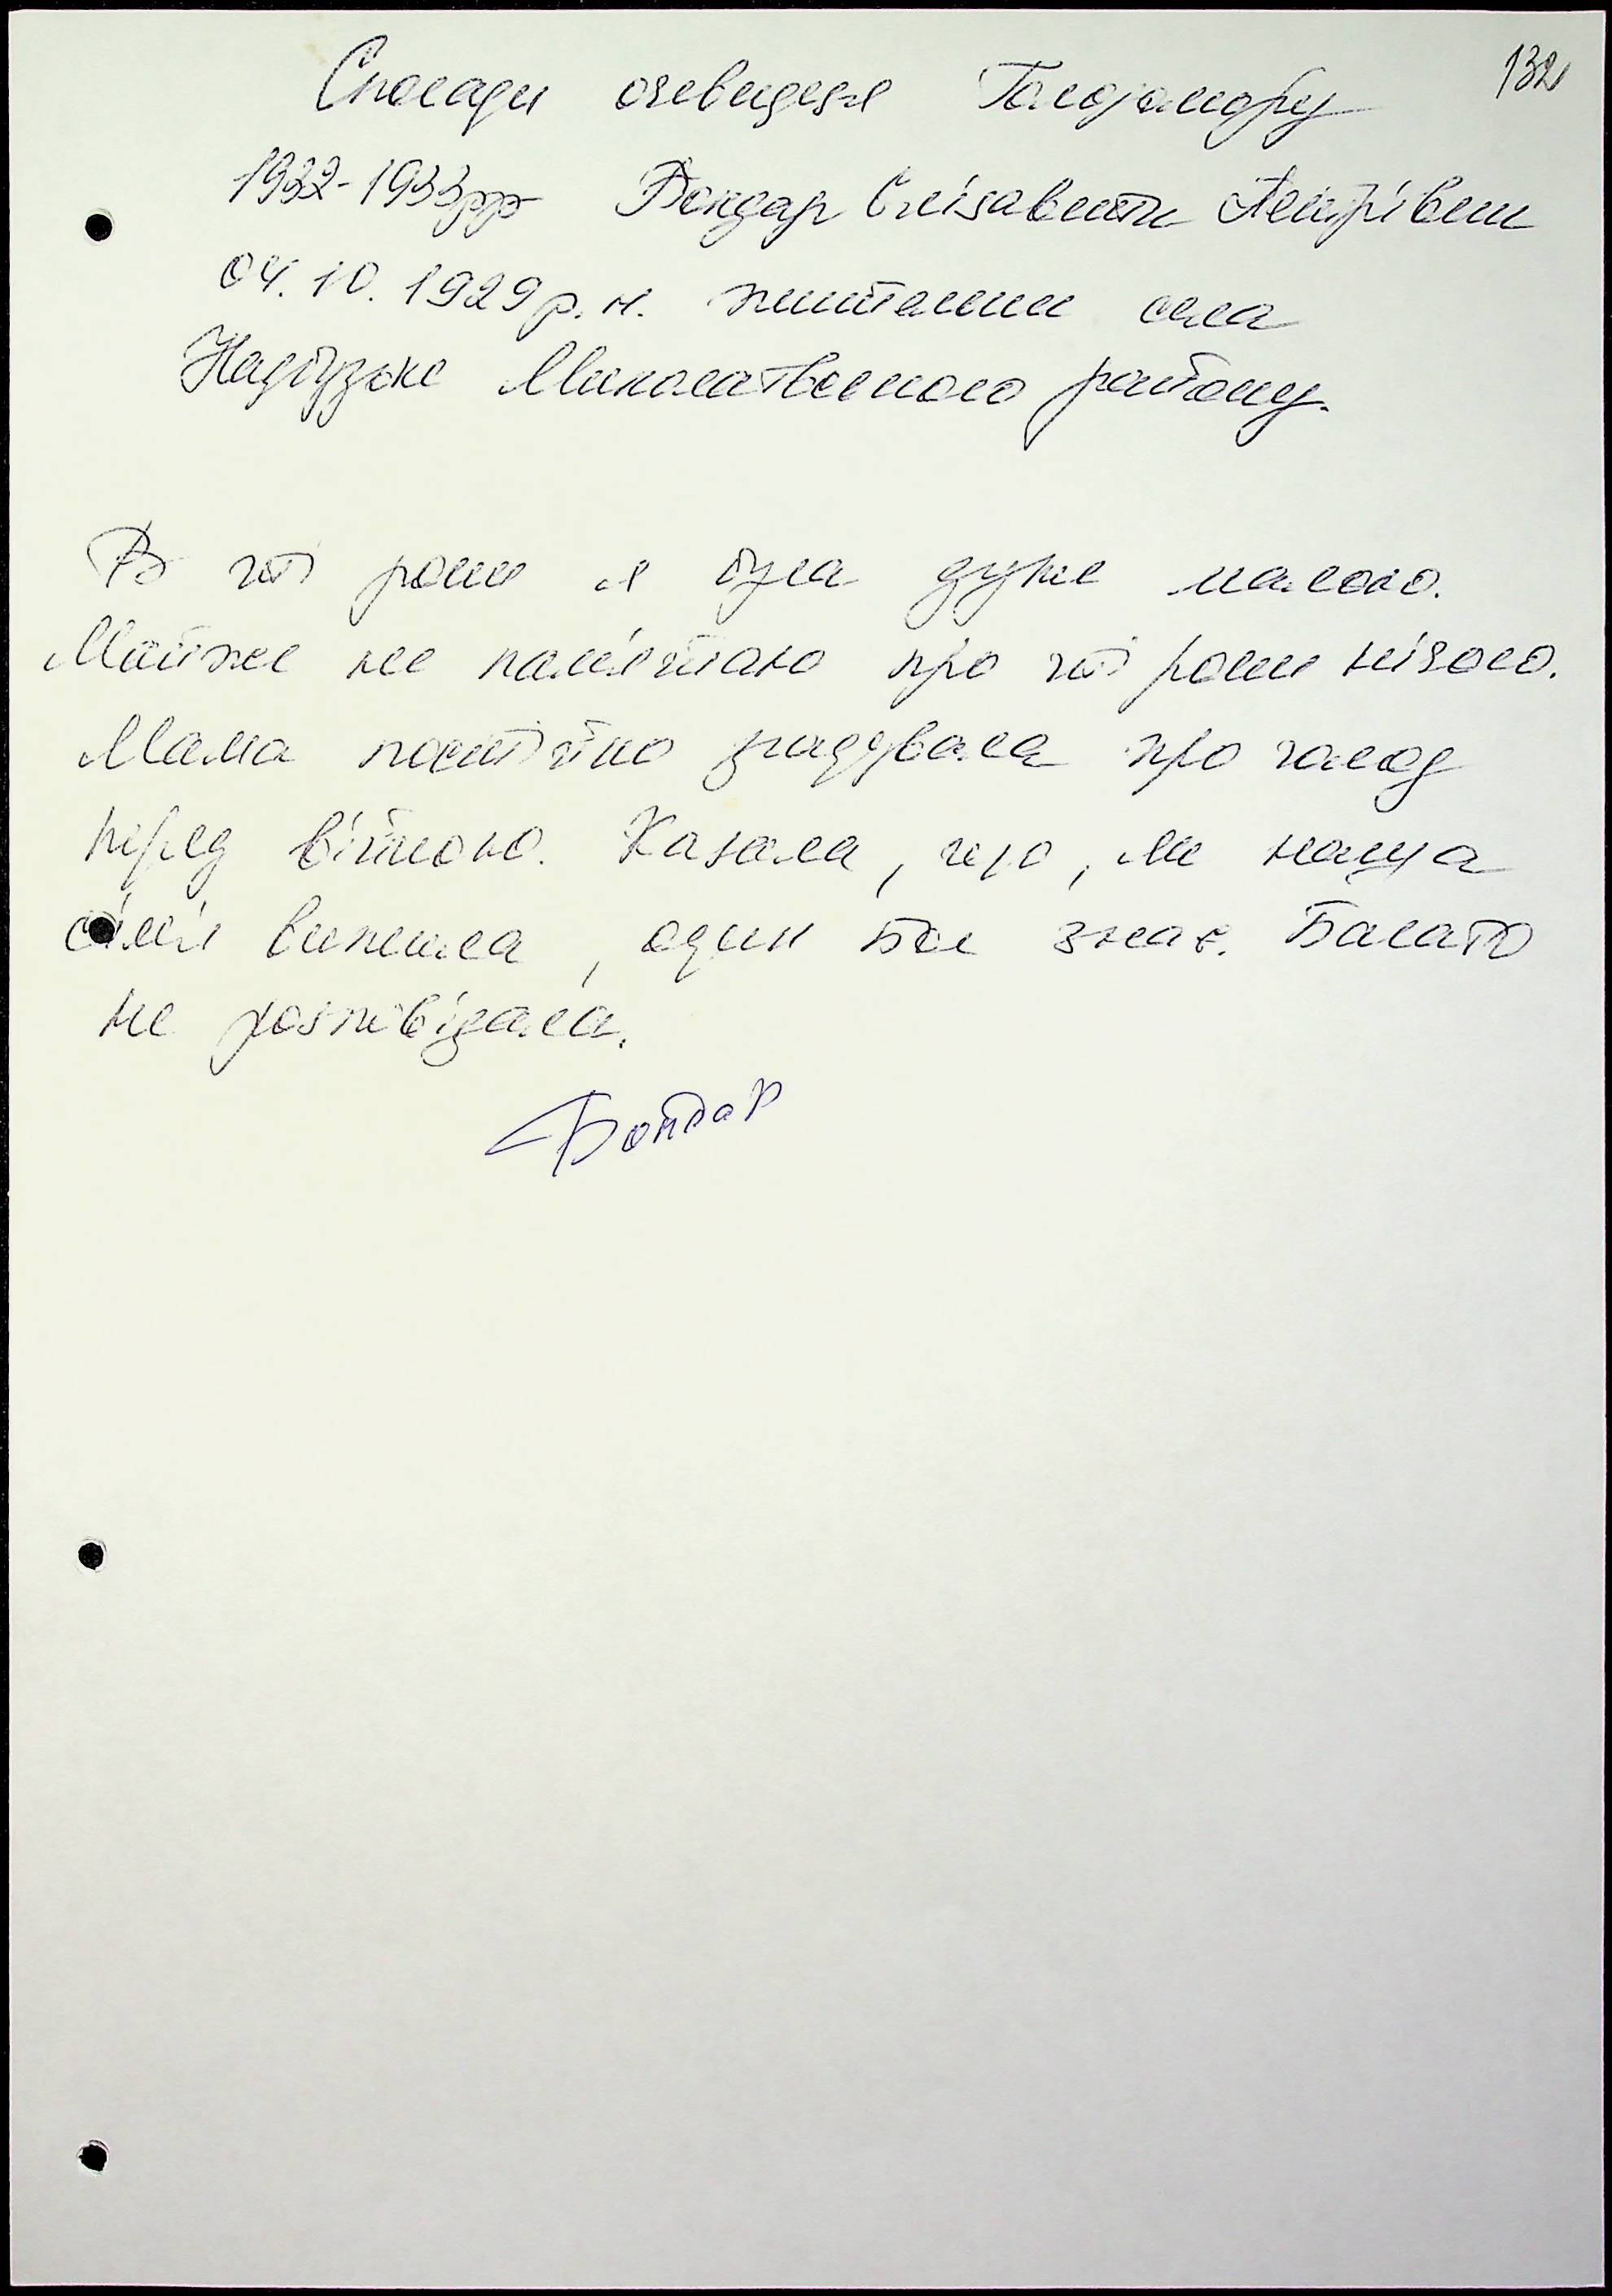 132
Спогади очевидця Голодомору
1932-1933рр Бондар Єлізавети Петрівни
04.10.1929р.н. жительки села
Надбузьке Миколаївського району.
В ті роки я була дуже малою.
Майже не пам'ятаю про ті роки нічого.
Мама постійно згадувала про голод
перед війною. Казала, що, як наша
сім'я вижила, один Бог знає. Багато
не розповідала.
Бондар